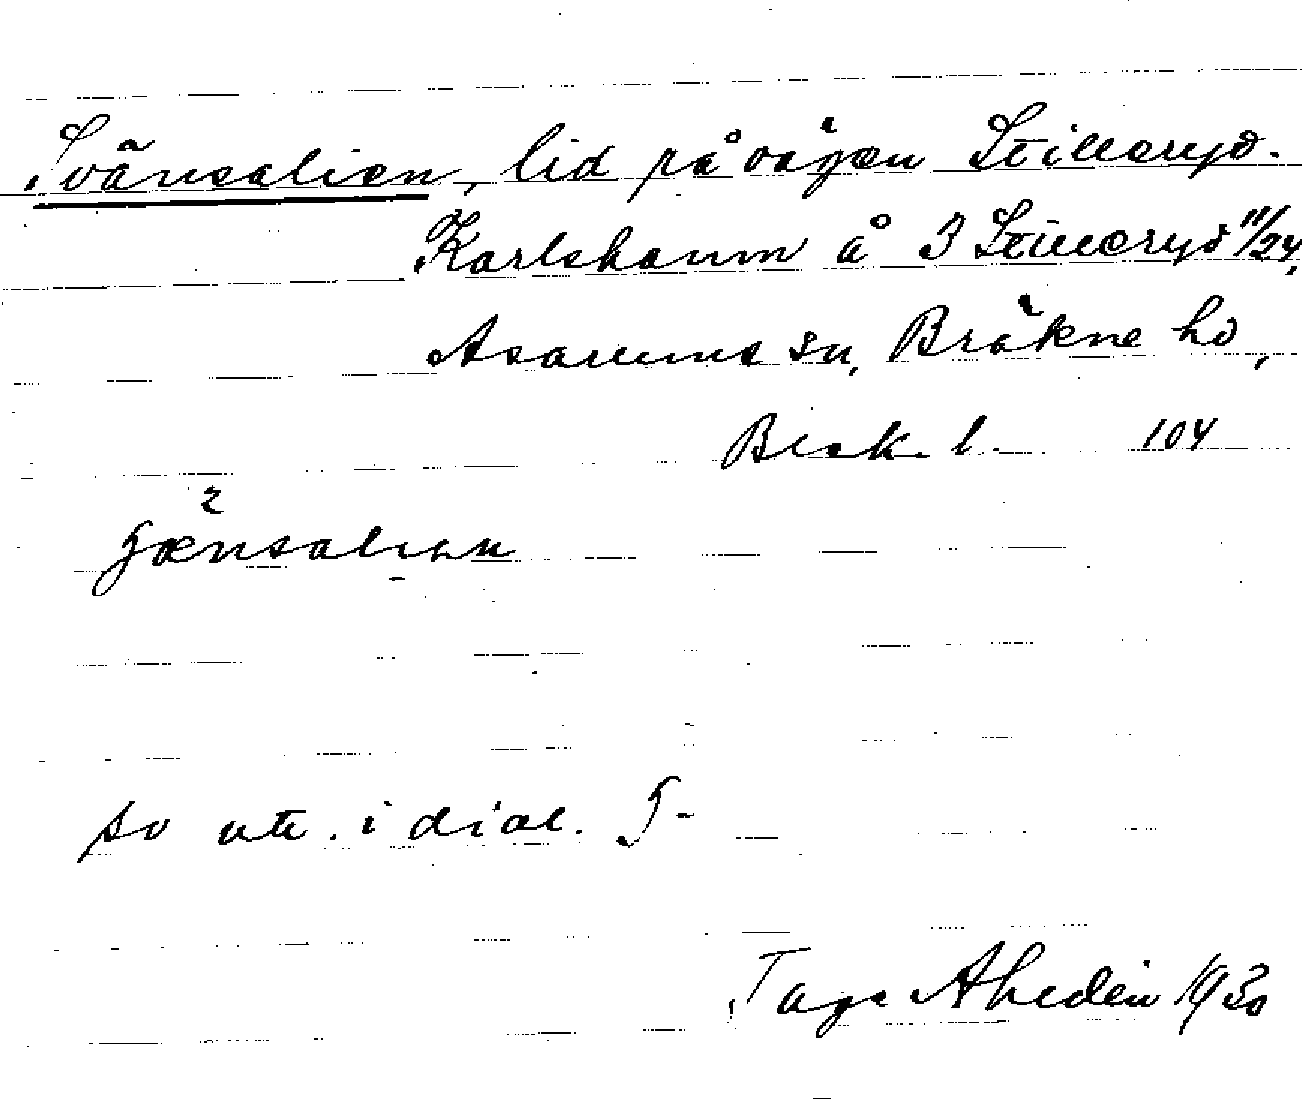 Svänsalien, lid på vägen Stilleryd-
Karlshamn å 3 Stilleryd 11/24,
Asarums sn, Bräkne hd,
Blek. l. 104
so utt. i dial. ʃ-
Tage Ahedén 1930